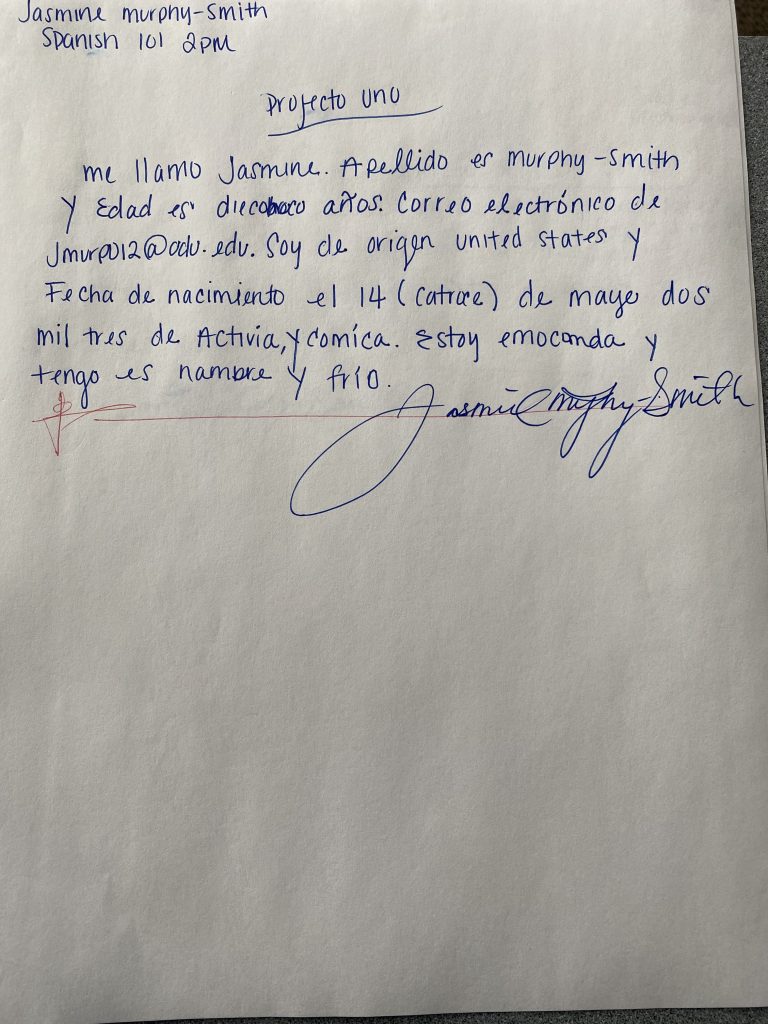 Jasmine murphy-smith
Spanish 101 2PM
Projecto uno
me llamo Jasmine. Apellido es murphy-smith
y Edad es años. Correo electrónico de
Jmurp012@odu.edu. Soy de origen united states y
Fecha de nacimiento el 14 (catroce) de mayo dos
mil tres de Activia, y comíca. Estoy emoconda y
tengo es nambre y frío.
Jasmine murphy-Smith